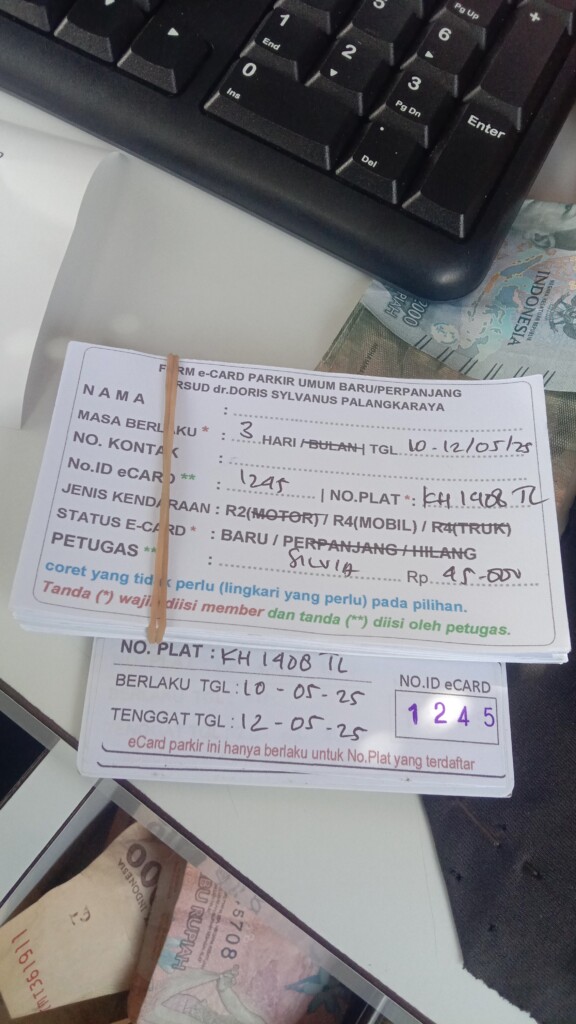 1
End
2
3
Pg Dn
6
Pg Up
+
0
Ins
.
Del
Enter
2000
RUPIAH
INDONESIA
FORM e-CARD PARKIR UMUM BARU/PERPANJANG
RSUD dr.DORIS SYLVANUS PALANGKARAYA
NAMA :
MASA BERLAKU * : 3 HARI / BULAN | TGL 10-12/05/25
NO. KONTAK :
No.ID eCARD ** : 1245 | NO.PLAT *: KH 1908 TL
JENIS KENDARAAN : R2(MOTOR) / R4(MOBIL) / R4(TRUK)
STATUS E-CARD * : BARU / PERPANJANG / HILANG
PETUGAS ** : SILVIA Rp. 45.000
coret yang tidak perlu (lingkari yang perlu) pada pilihan.
Tanda (*) wajib diisi member dan tanda (**) diisi oleh petugas.
NO. PLAT : KH 1908 TL
BERLAKU TGL : 10 - 05 - 25
TENGGAT TGL : 12 - 05 - 25
NO.ID eCARD
1245
eCard parkir ini hanya berlaku untuk No.Plat yang terdaftar
00
INDONESIA
361911
BU RUPIAH
5708